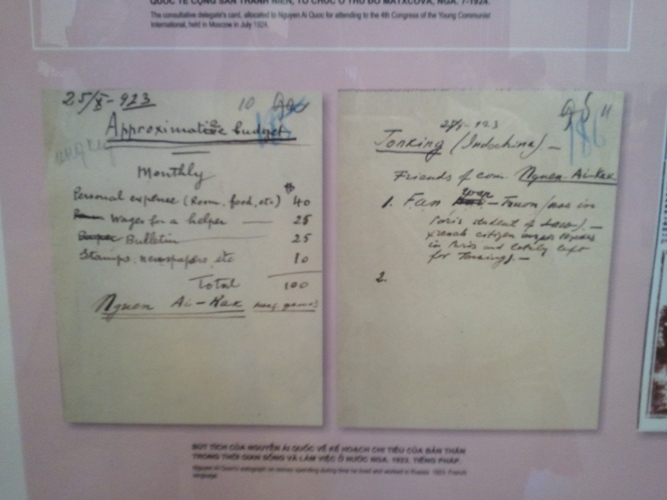 QUỐC TẾ CỘNG SẢN THANH NIÊN, TỔ CHỨC Ở THỦ ĐÔ MATXCƠVA, NGA. 7-1924.
The consultative delegate's card, allocated to Nguyen Ai Quoc for attending to the 4th Congress of the Young Communist
International, held in Moscow in July 1924.
25/X-923
10
Approximative budget
Monthly
$
Personal expense (Room, food, etc.) 40
Wages for a helper — 25
Bulletin 25
Stamps, newspapers, etc 10
Total 100
Nguen Ai-Kak
11
186
Tonking (Indochina) —
Friends of com. Nguen Ai-Kak
1. Fan Tuon (now in
Paris student of
French citizen
in Paris and lately left
for Tonking). —
2.
BÚT TÍCH CỦA NGUYỄN ÁI QUỐC VỀ KẾ HOẠCH CHI TIÊU CỦA BẢN THÂN
TRONG THỜI GIAN SỐNG VÀ LÀM VIỆC Ở NƯỚC NGA. 1923. TIẾNG PHÁP.
Nguyen Ai Quoc's autograph on money spending during time he lived and worked in Russia. 1923. French
language.